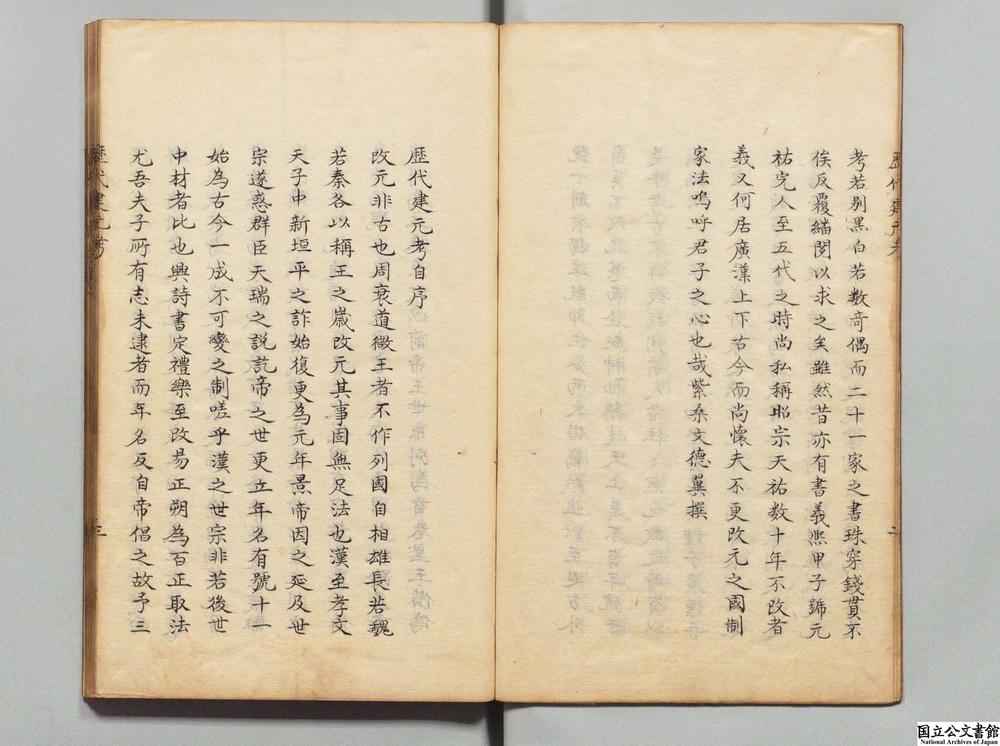 考若別黒白若数竒偶而二十一家之書珠穿錢貫不
俟反覆緇閱以求之矣雖然昔亦有書義熈甲子號元
祐完人至五代之時尚私稱昭宗天祐数十年不改者
義又何居廣漢上下古今而尚懐夫不更改元之國制
家法嗚呼君子之心也哉紫桑文德翼撰
歴代建元考自序
改元非古也周衰道微王者不作列國自相雄長若魏
若秦各以稱王之嵗改元其事固無足法也漢至孝文
天子中新垣平之詐始復更為元年景帝因之延及世
宗遂惑群臣天瑞之説訖帝之世更立年名有號十一
始為古今一成不可變之制嗟乎漢之世宗非若後世
中材者比也興詩書定禮樂至改易正朔為百王取法
尤吾夫子所有志未逮者而年名反自帝倡之故予三
歴代建元考
三
国立公文書館
National Archives of Japan